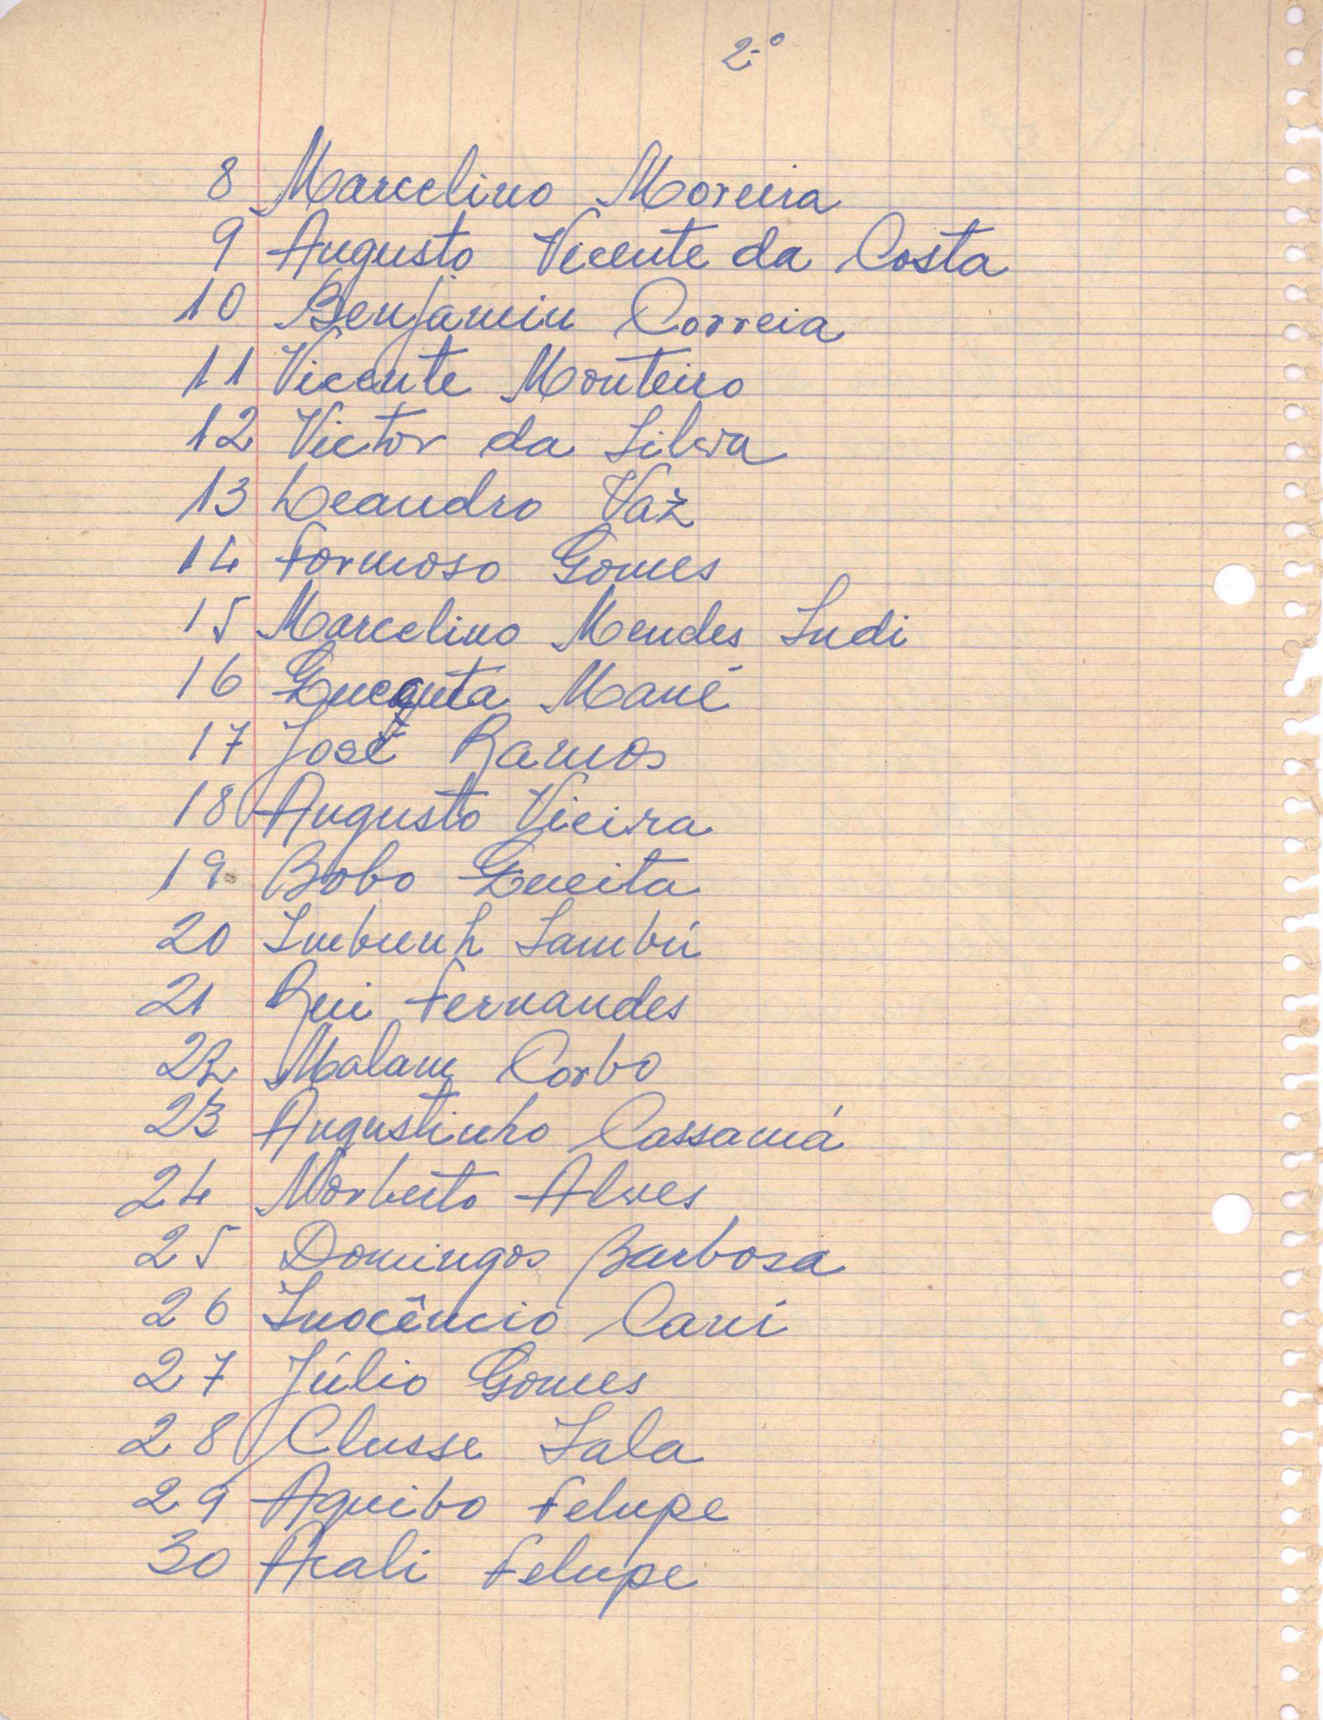 2-º
8 Marcelino Moreira
9 Augusto Vicente da Costa
10 Benjamin Correia
11 Vicente Monteiro
12 Victor da Silva
13 Leandro Vaz
14 Formoso Gomes
15 Marcelino Mendes Indi
16 Mané
17 José Ramos
18 Augusto Vieira
19 Bobo
20 Sambú
21 Rui Fernandes
22 Malam Corbo
23 Augustinho Cassamá
24 Norberto Alves
25 Domingos Barbosa
26 Inocêncio Caní
27 Júlio Gomes
28 Clusse Iala
29 Aquibo Felupe
30 Acali Felupe